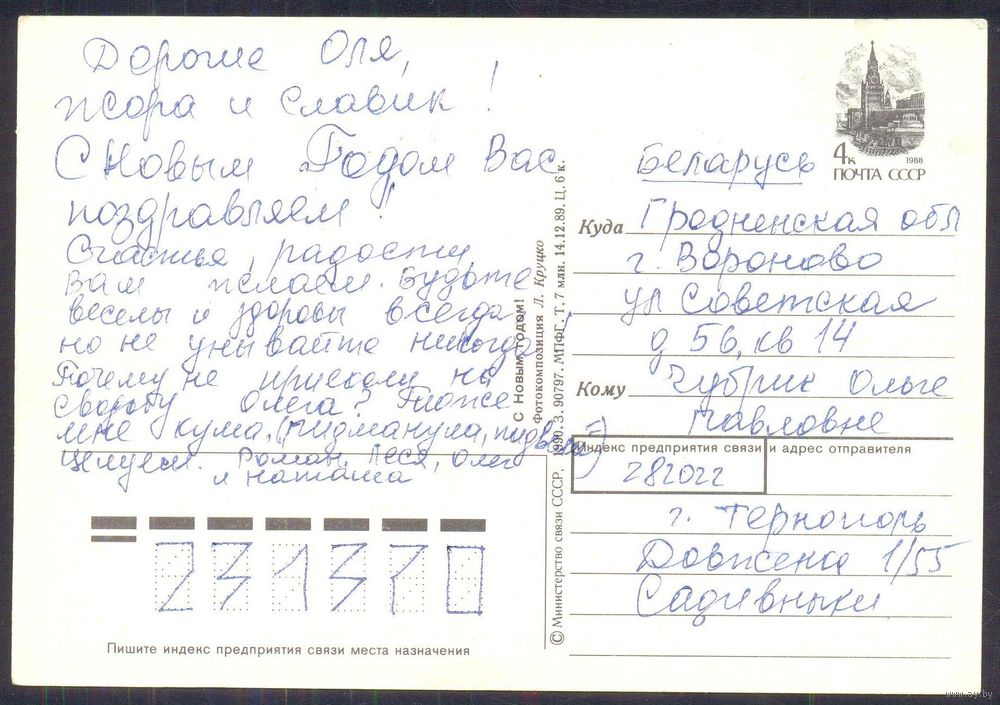 Дорогие Оля,
Жора и Славик!
С Новым Годом Вас
поздравляем!
Счастья, радости
Вам желаем. Будьте
веселы и здоровы всегда
но не унывайте никогда
Почему не приехали на
свадьбу Олега? Тоже
мне кума, (пидманула, пидвела)
Целуем. Роман, Леся, Олег
и Наташа
231510
Пишите индекс предприятия связи места назначения
С Новым годом!
Фотокомпозиция Л. Круцко
© Министерство связи СССР. 1990. З. 90797. МПФГ. Т. 7 млн. 14.12.89. Ц. 6 к.
4к
1988
ПОЧТА СССР
Беларусь
Куда Гродненская обл
г. Вороново
ул Советская
д 56, кв 14
Кому Чубрик Ольге
Павловне
Индекс предприятия связи и адрес отправителя
282022
г. Тернополь
Довжена 1/55
Садивныки
www.ay.by